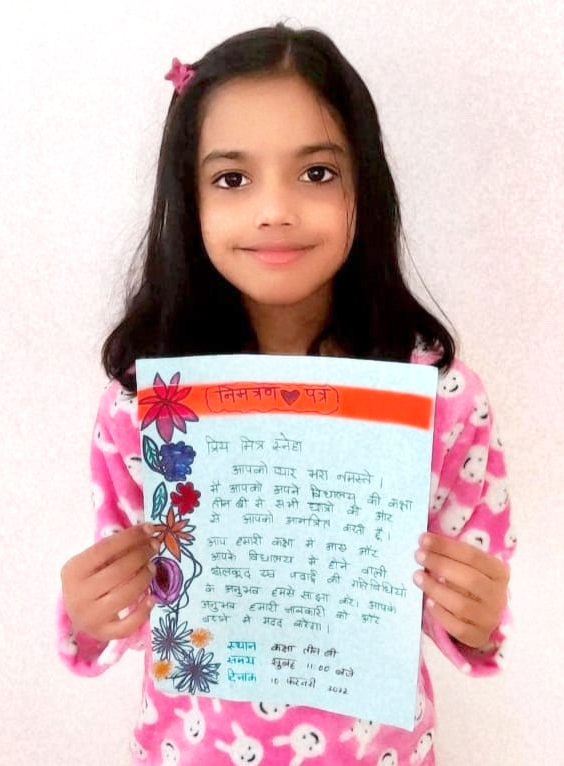 निमंत्रण पत्र
प्रिय मित्र स्नेहा
आपको प्यार भरा नमस्ते।
मैं आपको अपने विद्यालय की कक्षा
तीन बी में सभी छात्रों की ओर
से आपको आमंत्रित करती हूँ।
आप हमारी कक्षा में आए और
आपके विद्यालय में होने वाली
खेलकूद एवं पढाई की गतिविधियों
के अनुभव हमसे साझा करें। आपके
अनुभव हमारी जानकारी को और
बढाने में मदद करेगा।
स्थान कक्षा तीन बी
समय सुबह 11:00 बजे
दिनांक 10 फरवरी 2022